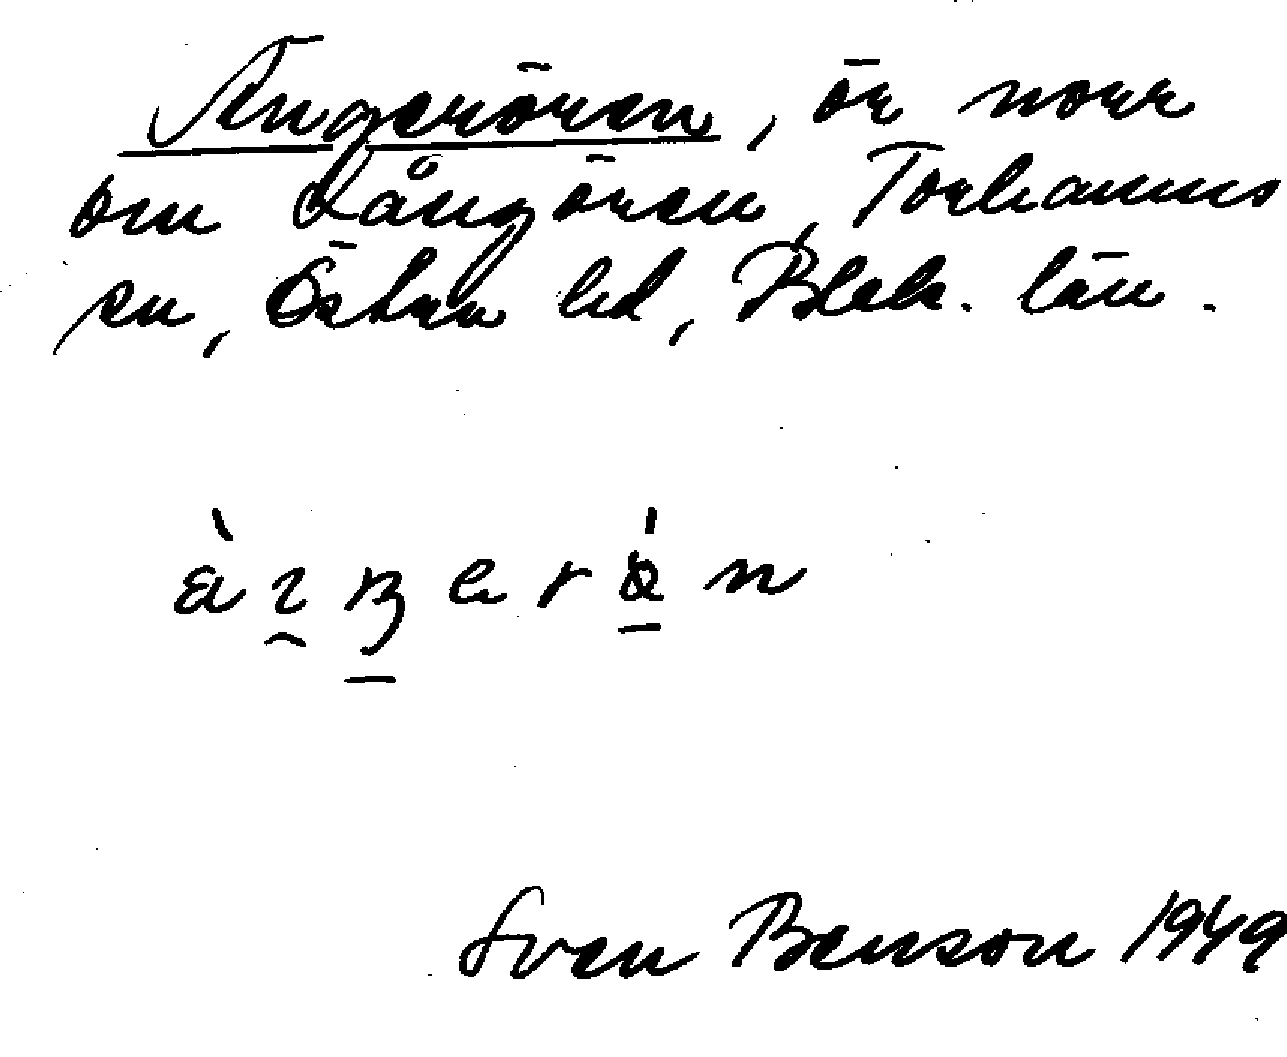 Ängerören, ör norr
om Långören, Torhamns
sn, Östra hd, Blek. län.
Sven Benson 1949